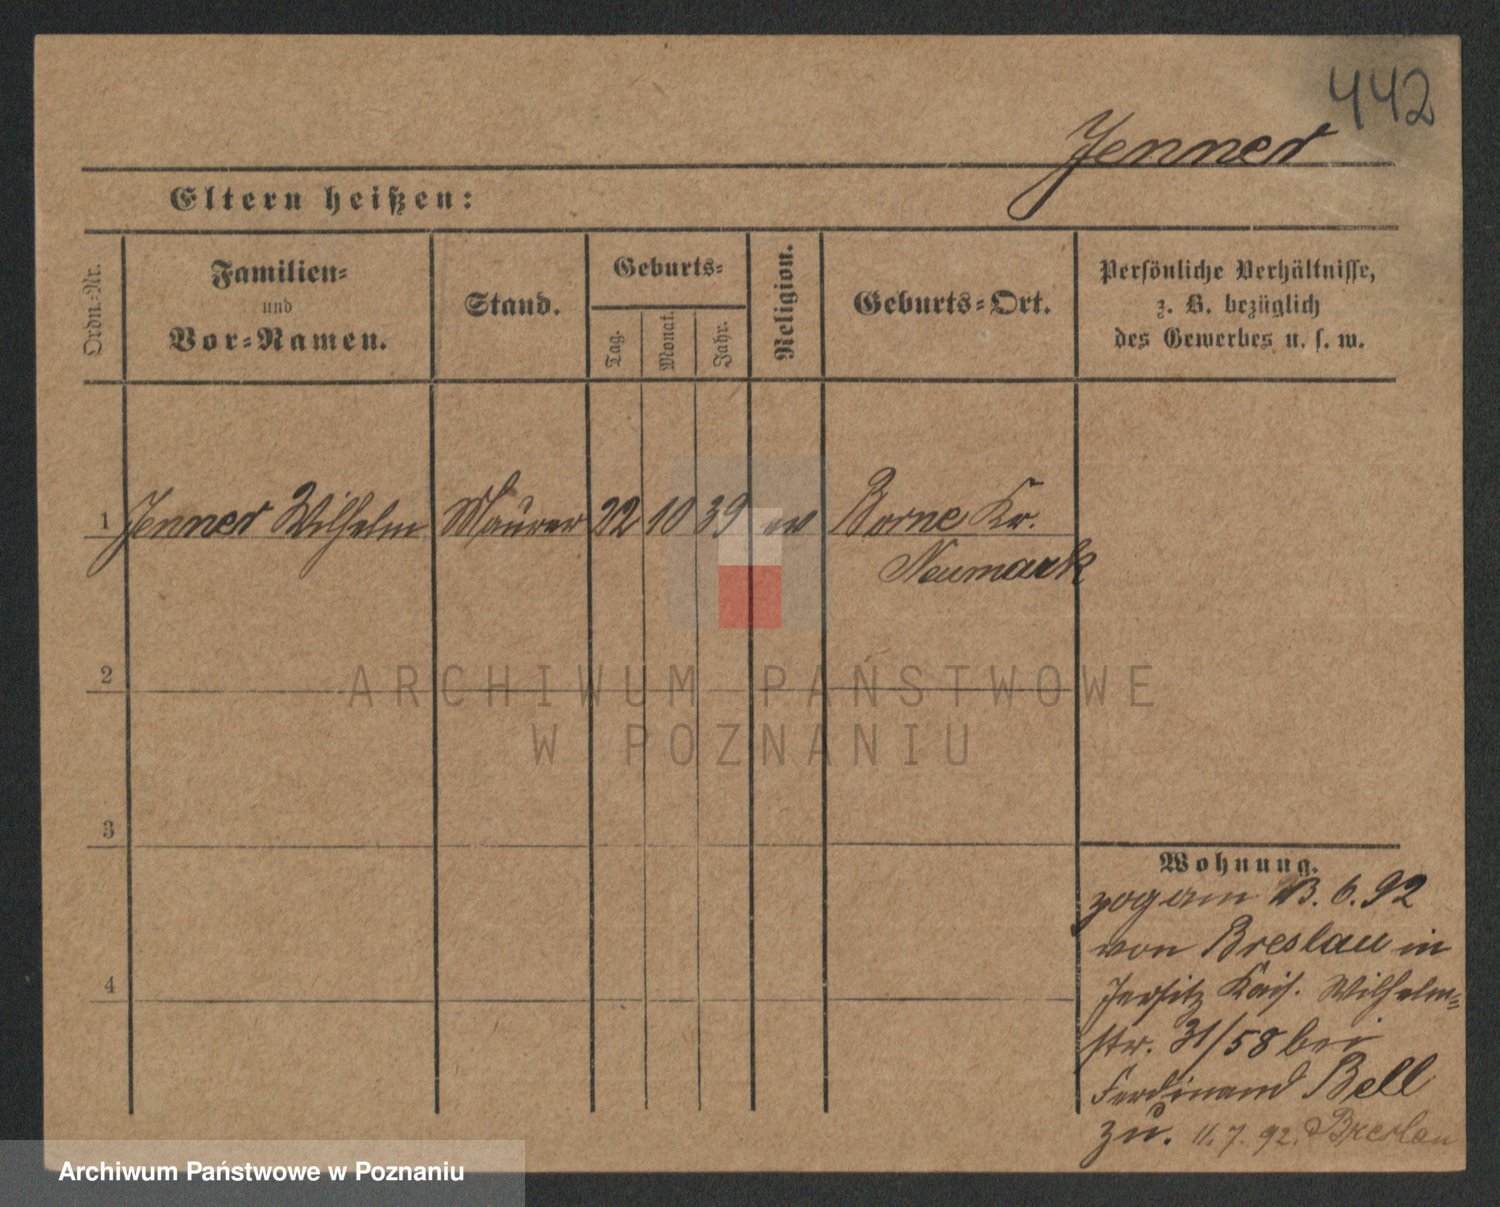 442
Jenner
Eltern heißen:
Ordn.-Nr.
Familien-
und
Vor-Namen.
Stand.
Geburts-
Tag.
Monat.
Jahr.
Religion.
Geburts-Ort.
Persönliche Verhältnisse,
z. B. bezüglich
des Gewerbes u. s. w.
1 Jenner Wilhelm Maurer 22 10 39 ev Borne Kr.
Neumark
2
ARCHIWUM PAŃSTWOWE
W POZNANIU
3
Wohnung.
zog am 13. 6. 92
von Breslau in
4
Jersitz Kais. Wilhelm-
str. 31/58 bei
Ferdinand Bell
zu. 11. 7. 92. Breslau
Archiwum Państwowe w Poznaniu